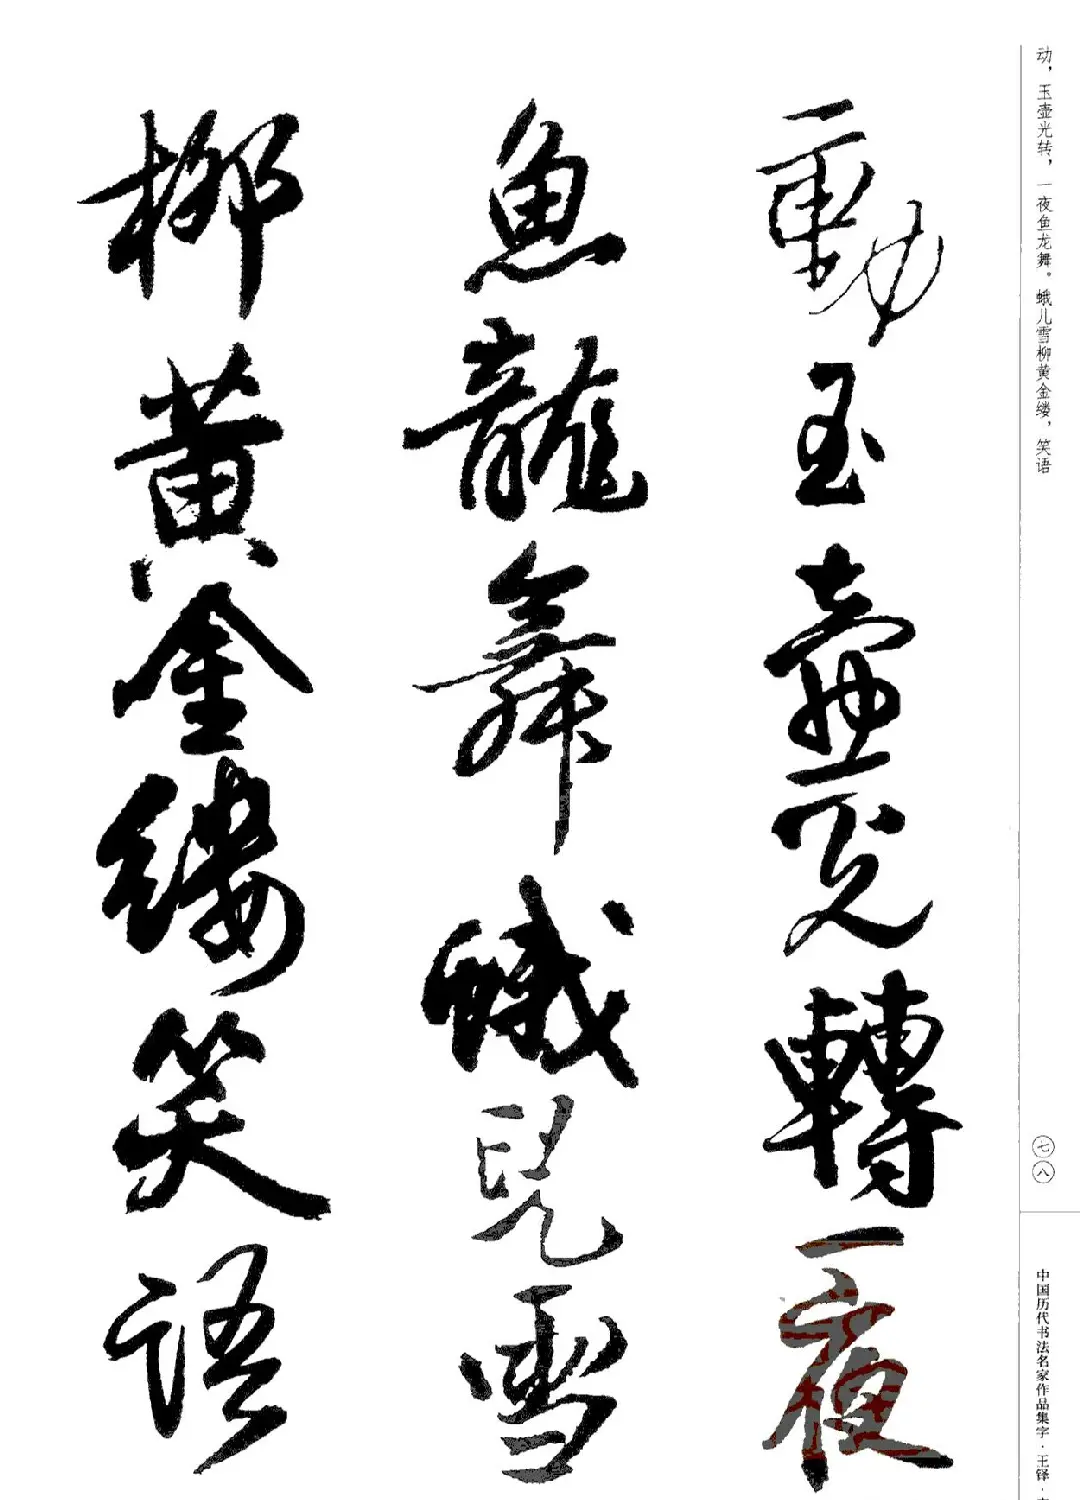 動玉壺光轉一夜
魚龍舞蛾兒雪
柳黃金縷笑語
动，玉壶光转，一夜鱼龙舞。蛾儿雪柳黄金缕，笑语
七八
中国历代书法名家作品集字·王铎·